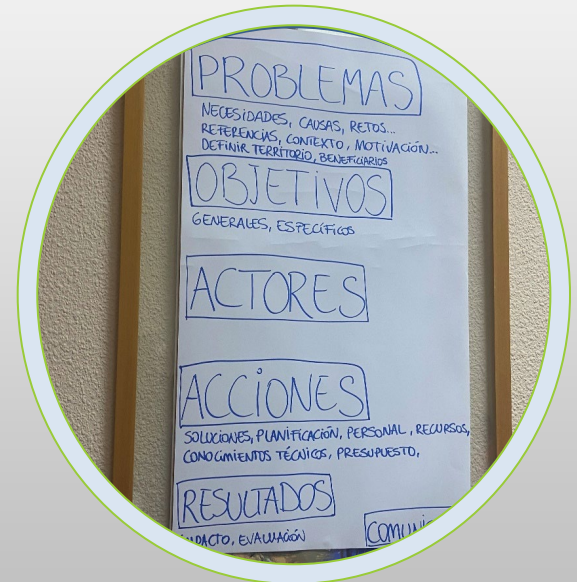 PROBLEMAS
NECESIDADES, CAUSAS, RETOS...
REFERENCIAS, CONTEXTO, MOTIVACIÓN...
DEFINIR TERRITORIO, BENEFICIARIOS
OBJETIVOS
GENERALES, ESPECÍFICOS
ACTORES
ACCIONES
SOLUCIONES, PLANIFICACIÓN, PERSONAL, RECURSOS,
CONOCIMIENTOS TÉCNICOS, PRESUPUESTO,
RESULTADOS
EVALUACIÓN